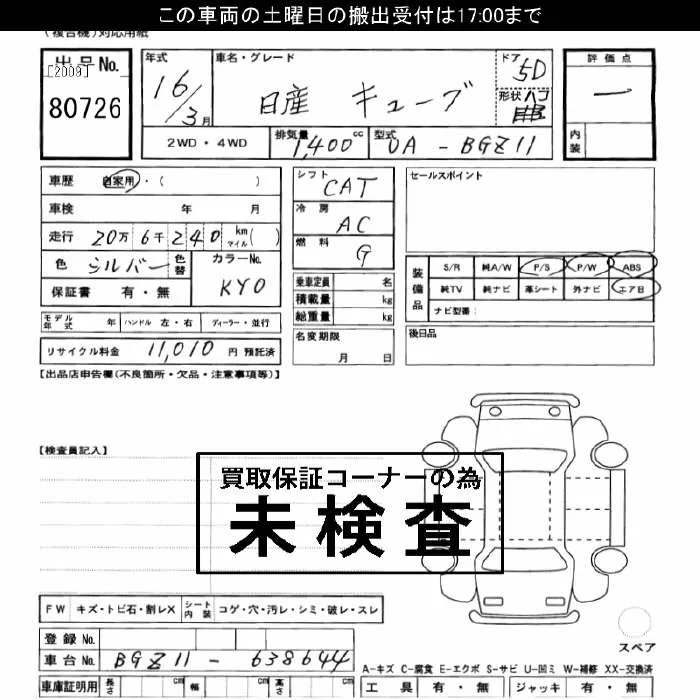 この車両の土曜日の搬出受付は17:00まで
(複合機)対応用紙
出品No. [2009] 80726
年式 16/3月
車名・グレード 日産 キューブ
ドア 5D
形状 ハコ
評価点 ー
2WD・4WD
排気量 1,400cc
型式 UA-BGZ11
内装
車歴 自家用・( )
車検 年 月
走行 20万6千240km マイル( )
色 シルバー 色替 カラーNo. KY0
保証書 有・無
シフト CAT
冷房 AC
燃料 G
乗車定員 名
積載量 kg
総重量 kg
セールスポイント
装備品 S/R 純A/W P/S P/W ABS
純TV 純ナビ 革シート 外ナビ エアB
ナビ型番:
モデル年式 年 ハンドル 左・右 ディーラー・並行
名変期限 月 日
後日品
リサイクル料金 11,010円 預託済
【出品店申告欄(不良箇所・欠品・注意事項等)】
【検査員記入】
買取保証コーナーの為
未検査
FW キズ・トビ石・割レX シート内装 コゲ・穴・汚レ・シミ・破レ・スレ
登録No.
車台No. BGZ11-638644
スペア
A-キズ C-腐食 E-エクボ S-サビ U-凹ミ W-補修 XX-交換済
車庫証明用 長さ cm 幅 cm 高さ cm
工具 有・無 ジャッキ 有・無